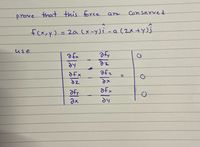 prove that this force are conserved
f(x,y) = 2a (x-y)î - a (2x+y)ĵ
use
∂fz/∂y - ∂fy/∂z | 0
∂fx/∂z - ∂fz/∂x = 0
∂fy/∂x - ∂fx/∂y | 0